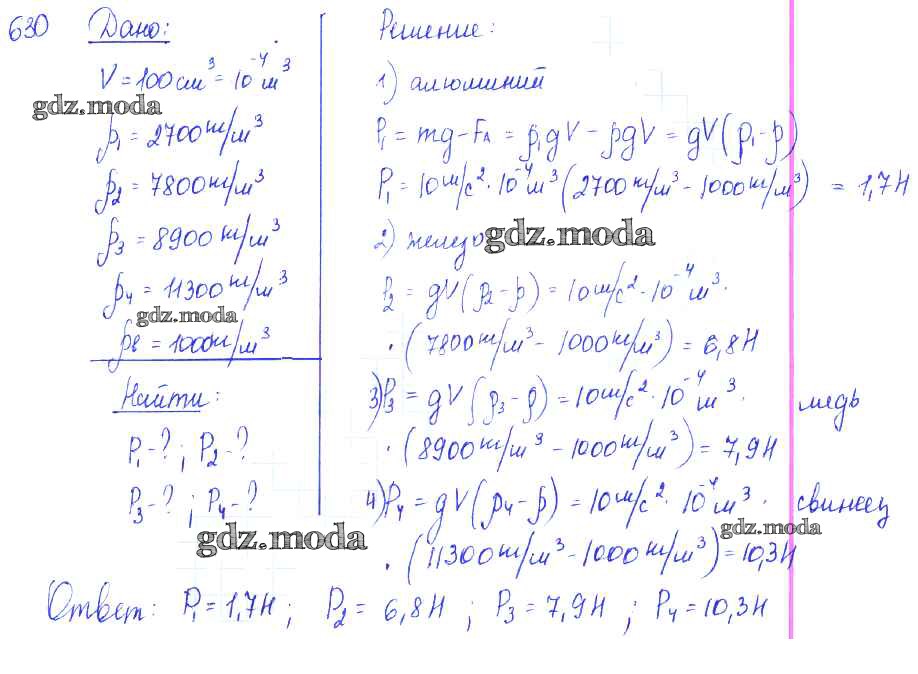 630 Дано:
V = 100 см³ = 10⁻⁴ м³
gdz.moda
ρ₁ = 2700 кг/м³
ρ₂ = 7800 кг/м³
ρ₃ = 8900 кг/м³
ρ₄ = 11300 кг/м³
gdz.moda
ρв = 1000 кг/м³
Найти:
P₁ - ? ; P₂ - ?
P₃ - ? ; P₄ - ?
gdz.moda
Решение:
1) алюминий
P₁ = mg - Fₐ = ρ₁gV - ρgV = gV(ρ₁ - ρ)
P₁ = 10 м/с² · 10⁻⁴ м³ (2700 кг/м³ - 1000 кг/м³) = 1,7 Н
2) железо gdz.moda
P₂ = gV(ρ₂ - ρ) = 10 м/с² · 10⁻⁴ м³ ·
· (7800 кг/м³ - 1000 кг/м³) = 6,8 Н
3) P₃ = gV(ρ₃ - ρ) = 10 м/с² · 10⁻⁴ м³ · медь
· (8900 кг/м³ - 1000 кг/м³) = 7,9 Н
4) P₄ = gV(ρ₄ - ρ) = 10 м/с² · 10⁻⁴ м³ · свинец
gdz.moda
· (11300 кг/м³ - 1000 кг/м³) = 10,3 Н
Ответ: P₁ = 1,7 Н ; P₂ = 6,8 Н ; P₃ = 7,9 Н ; P₄ = 10,3 Н